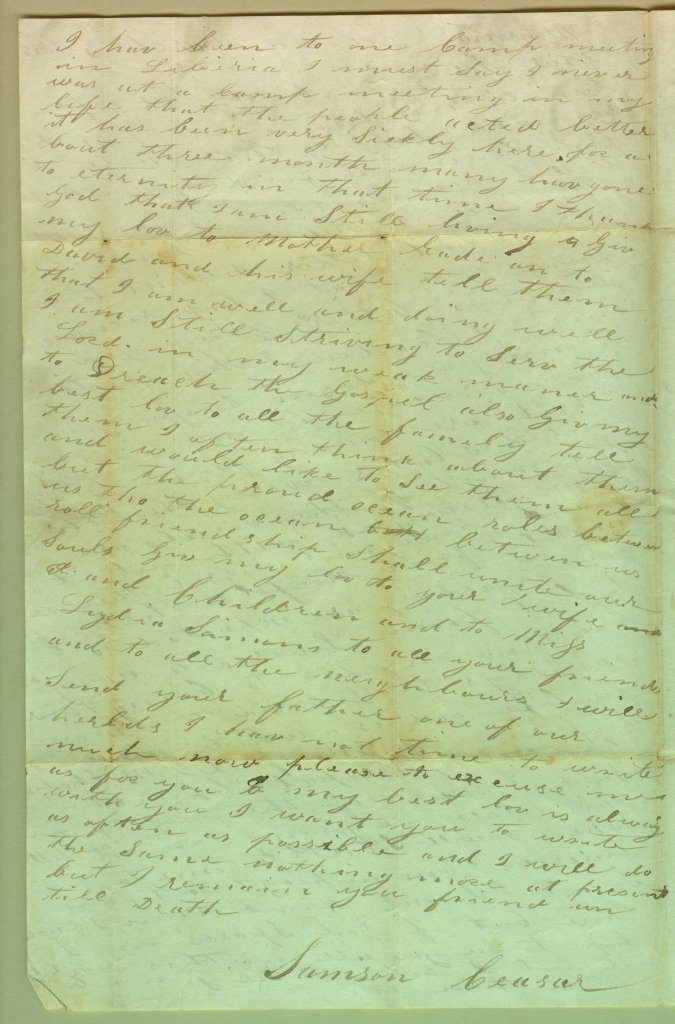 I hav been to one Camp meeting
in Liberia I must Say I never
was at a Camp meeting in my
life that the people acted better
it has been very Sickly here for a
bout three month many hav gone
to eternity in that time I thank
God that I am Still living Giv
my lov to Mother Cade an to
David and his wife tell them
that I am well and doing well
I am Still Striving to Serv the
Lord in my weak maner and
to Preach the Gospel also Giv my
best lov to all the family tell
them I often think about them
and would like to See them all
but the proud ocean roles between
us tho the ocean between us
roll friendship Shall unite our
Souls Giv my lov to your wife and
and Children and to Miss
Lydia Simons to all your friends
and to all the neighbours I will
Send your father one of our
herlds I hav not time to write
much now please to excuse me
as for you my best lov is alway
with you I want you to write
as often as possible and I will do
the Same nothing more at present
but I remain you friend un
till Death
Samson Ceasar